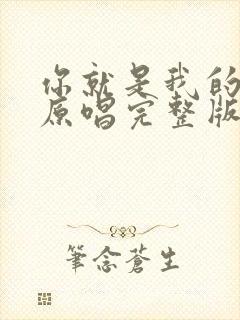 你就是我的
原唱完整版
筆念蒼生